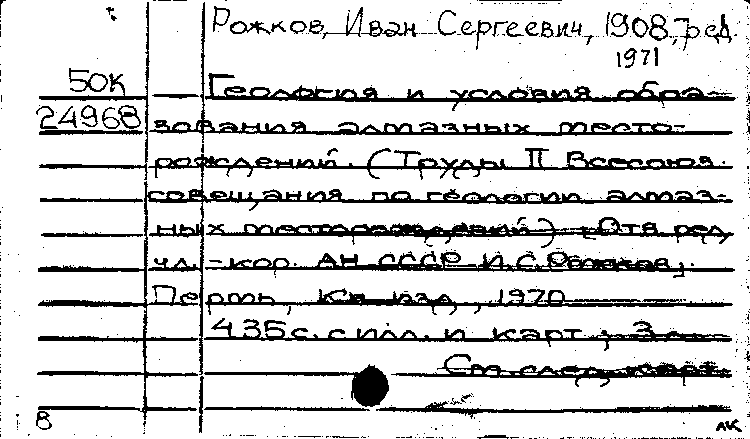 Рожков, Иван Сергеевич, 1908-, ред.
1971
50К
Геология и условия обра-
24968
зования алмазных место-
рождений. (Труды II Всесоюз.
совещания по геологии алмаз-
ных месторождений). Отв. ред.
чл.-кор. АН СССР И.С. Рожков.
Пермь, Кн. изд., 1970
435 с. с илл. и карт; 3 л.
См. след. карт.
8
АК